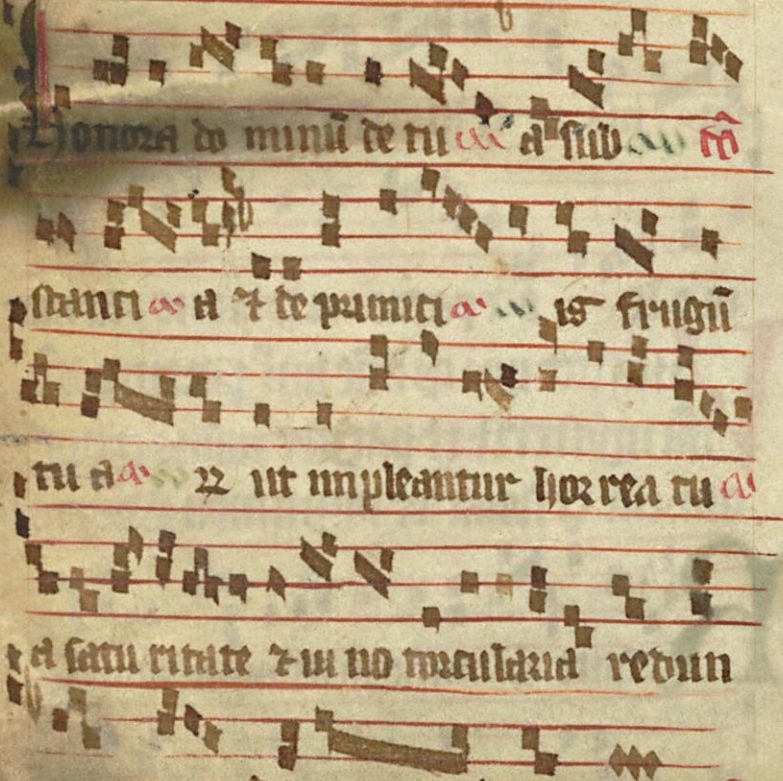 Honora do minū de tu a sub
stanci a ⁊ de primici is frugū
tu a rꝝ ut impleantur horrea tu
a satu ritate ⁊ ui no torcularia redun